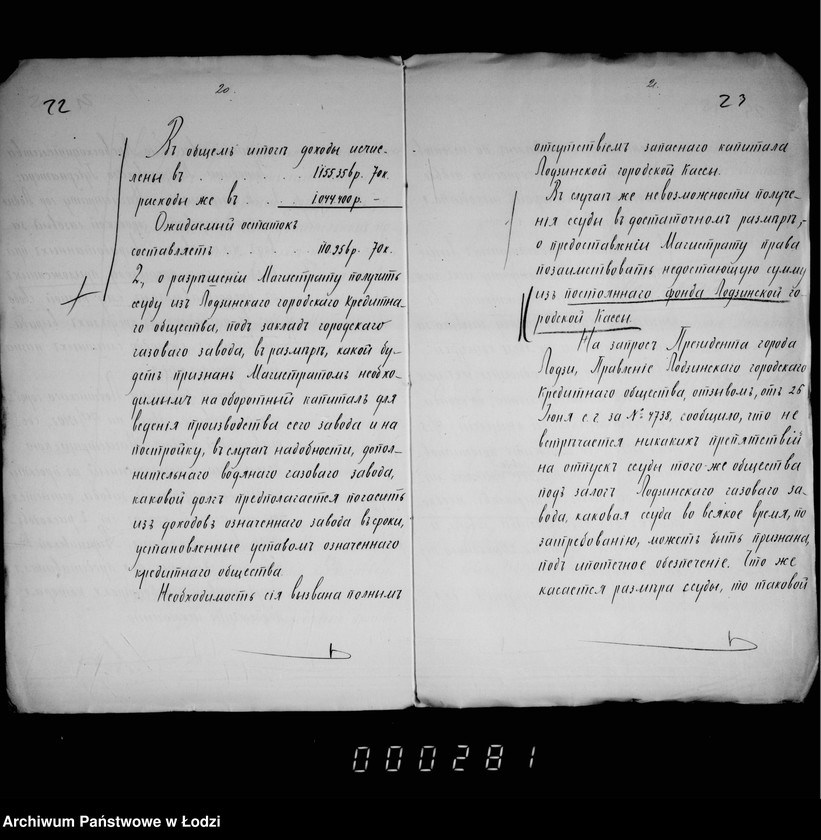 20
22
Въ общемъ итогѣ доходы исчис-
лены въ . . . . 115535р. 70к.
расходы же въ . . . 104440р. -
Ожидаемый остатокъ
составляетъ . . . . 11095р. 70к.
2, о разрѣшеніи Магистрату получить
ссуду изъ Лодзинскаго городскаго кредитна-
го общества, подъ закладъ городскаго
газоваго завода, въ размѣрѣ, какой бу-
детъ признанъ Магистратомъ необхо-
димымъ на оборотный капиталъ для
веденія производства сего завода и на
постройку, въ случаѣ надобности, допол-
нительнаго водянаго газоваго завода,
каковой долгъ предполагается погасить
изъ доходовъ означеннаго завода въ сроки,
установленные уставомъ означеннаго
кредитнаго общества.
Необходимость сія вызвана полнымъ
21.
23
отсутствіемъ запаснаго капитала
Лодзинской городской Кассы.
Въ случаѣ же невозможности получе-
нія ссуды въ достаточномъ размѣрѣ,-
о предоставленіи Магистрату права
позаимствовать недостающую сумму
изъ постояннаго фонда Лодзинской го-
родской Кассы.
На запросъ Президента города
Лодзи, Правленіе Лодзинскаго городскаго
кредитнаго общества, отзывомъ, отъ 25
Іюня с. г. за № 4738, сообщило, что не
встрѣчается никакихъ препятствій
на отпускъ ссуды того-же общества
подъ залогъ Лодзинскаго газоваго за-
вода, каковая ссуда во всякое время, по
затребованію, можетъ быть признана,
подъ ипотечное обезпеченіе. Что же
касается размѣра ссуды, то таковой
000281
Archiwum Państwowe w Łodzi